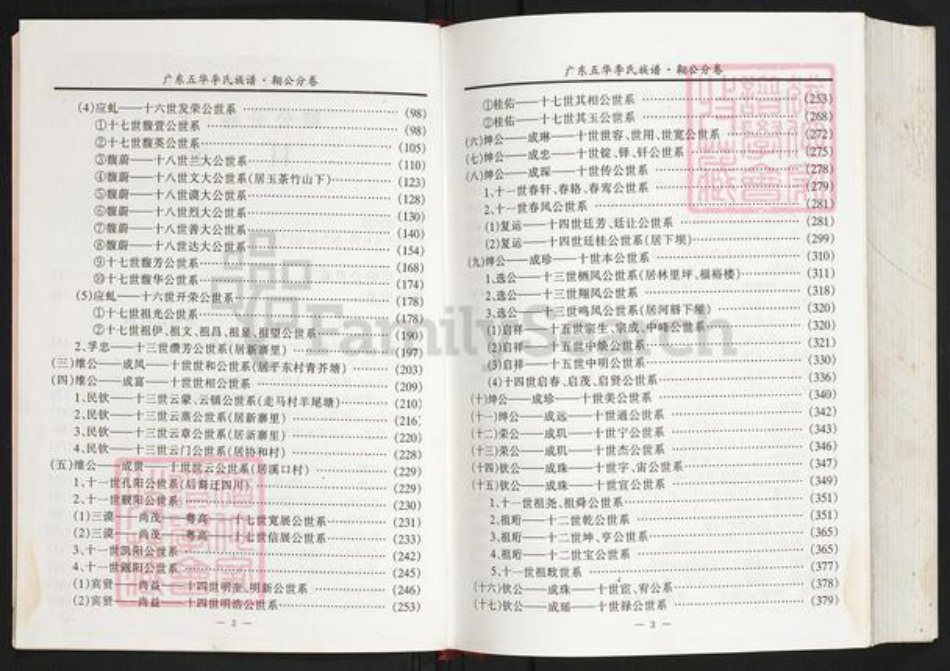 广东五华李氏族谱·翱公分卷
(4)应虬——十六世发荣公世系 (98)
①十七世馥萱公世系 (98)
②十七世馥英公世系 (105)
③馥蔚——十八世兰大公世系 (110)
④馥蔚——十八世文大公世系(居玉茶竹山下) (123)
⑤馥蔚——十八世谟大公世系 (128)
⑥馥蔚——十八世烈大公世系 (130)
⑦馥蔚——十八世善大公世系 (140)
⑧馥蔚——十八世达大公世系 (154)
⑨十七世馥芳公世系 (168)
⑩十七世馥华公世系 (174)
(5)应虬——十六世开荣公世系 (178)
①十七世祖光公世系 (178)
②十七世祖伊、祖文、祖昌、祖显、祖望公世系 (190)
2、孚忠——十三世瓒芳公世系(居新寨里) (197)
(三)维公——成凤——十世世和公世系(居平东村青荞塘) (203)
(四)维公——成富——十世世相公世系 (209)
1、民钦——十三世云蒙、云镇公世系(走马村羊尾塘) (210)
2、民钦——十三世云燕公世系(居新寨里) (216)
3、民钦——十三世云章公世系(居新寨里) (220)
4、民钦——十三世云门公世系(居协和村) (228)
(五)维公——成贵——十世世云公世系(居溪口村) (229)
1、十一世孔阳公世系(后裔迁四川) (229)
2、十一世觐阳公世系 (230)
(1)三谟——尚茂——粤高——十七世宽展公世系 (231)
(2)三谟——尚茂——粤高——十七世信展公世系 (233)
3、十一世凯阳公世系 (242)
4、十一世觐阳公世系 (245)
(1)宾贤——尚益——十四世明奎、明新公世系 (246)
(2)宾贤——尚益——十四世明浩公世系 (253)
— 2 —
广东五华李氏族谱·翱公分卷
①桂佑——十七世其相公世系 (253)
②桂佑——十七世其玉公世系 (268)
(六)绅公——成琳——十世世容、世用、世宽公世系 (272)
(七)绅公——成忠——十世锭、铎、钎公世系 (275)
(八)绅公——成琛——十世传公世系 (278)
1、十一世春轩、春辂、春鸾公世系 (279)
2、十一世春风公世系 (281)
(1)复运——十四世廷芳、廷让公世系 (281)
(2)复运——十四世廷桂公世系(居下坝) (299)
(九)绅公——成珍——十世本公世系 (310)
1、选公——十三世栖凤公世系(居林里坪、福裕楼) (311)
2、选公——十三世翔凤公世系 (318)
3、选公——十三世鸣凤公世系(居河唇下屋) (320)
(1)启祥——十五世宗生、宗成、中峰公世系 (320)
(2)启祥——十五世中焕公世系 (321)
(3)启祥——十五世中明公世系 (330)
(4)十四世启春、启茂、启贤公世系 (336)
(十)绅公——成珍——十世美公世系 (340)
(十一)绅公——成远——十世通公世系 (342)
(十二)荣公——成玑——十世宁公世系 (343)
(十三)荣公——成玑——十世杰公世系 (346)
(十四)钦公——成珠——十世宇、宙公世系 (347)
(十五)钦公——成珠——十世宣公世系 (349)
1、十一世祖尧、祖舜公世系 (351)
2、祖珩——十二世乾公世系 (351)
3、祖珩——十二世坤、亨公世系 (365)
4、祖珩——十二世宝公世系 (365)
5、十一世祖政世系 (377)
(十六)钦公——成珠——十世宦、宥公系 (378)
(十七)钦公——成瑶——十世禄公世系 (379)
— 3 —
FamilySearch